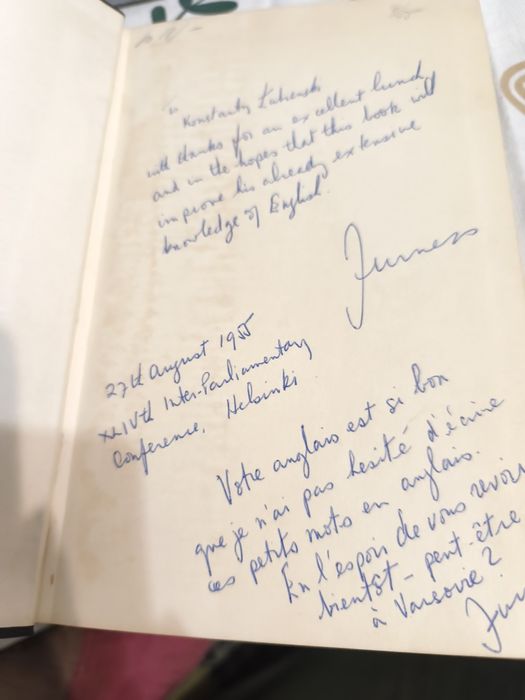 to
Konstanty Łubieński
with thanks for an excellent lunch
and in the hopes that this book will
improve his already extensive
knowledge of English.
Furness
27th August 1955
XLIVth Inter-Parliamentary
Conference, Helsinki
Votre anglais est si bon
que je n'ai pas hesité d'écrire
ces petits mots en anglais.
En l'espoir de vous revoir
bientôt - peut-être
à Varsovie?